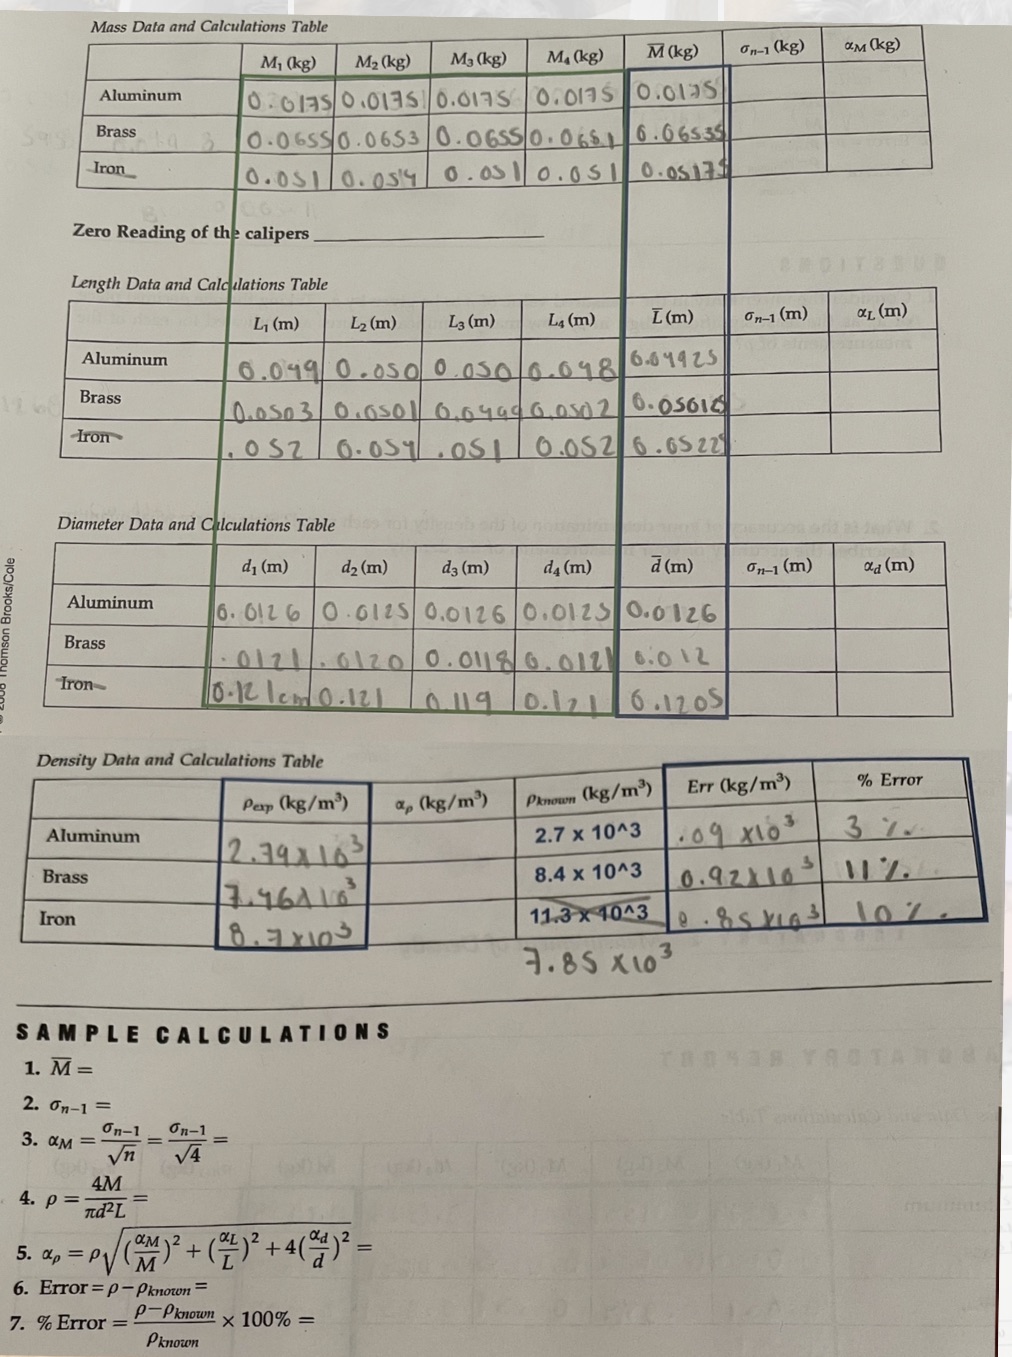 Mass Data and Calculations Table
M₁ (kg) M₂ (kg) M₃ (kg) M₄ (kg) M̅ (kg) σₙ₋₁ (kg) αM (kg)
Aluminum 0.0175 0.0175 0.0175 0.0175 0.0175
Brass 0.0655 0.0653 0.0655 0.0651 0.06535
Iron 0.051 0.054 0.051 0.051 0.05175
Zero Reading of the calipers
Length Data and Calculations Table
L₁ (m) L₂ (m) L₃ (m) L₄ (m) L̅ (m) σₙ₋₁ (m) αL (m)
Aluminum 0.049 0.050 0.050 0.048 0.04925
Brass 0.0503 0.0501 0.0499 0.0502 0.05012
Iron .052 0.054 .051 0.052 0.0522
Diameter Data and Calculations Table
d₁ (m) d₂ (m) d₃ (m) d₄ (m) d̅ (m) σₙ₋₁ (m) αd (m)
Aluminum 0.0126 0.0125 0.0126 0.0125 0.0126
Brass .0121 .0120 0.0118 0.0121 0.012
Iron 0.121cm 0.121 0.119 0.121 0.1205
Thomson Brooks/Cole
Density Data and Calculations Table
ρexp (kg/m³) αρ (kg/m³) ρknown (kg/m³) Err (kg/m³) % Error
Aluminum 2.79x10³ 2.7 x 10^3 .09 x10³ 3 %
Brass 7.46x10³ 8.4 x 10^3 0.92x10³ 11 %.
Iron 8.7x10³ 11.3 x 10^3 0.85 x10³ 10 %.
7.85 x10³
SAMPLE CALCULATIONS
1. M̅ =
2. σₙ₋₁ =
3. αM = σₙ₋₁/√n = σₙ₋₁/√4 =
4. ρ = 4M/πd²L =
5. αρ = ρ√((αM/M)² + (αL/L)² + 4(αd/d)²) =
6. Error = ρ − ρknown =
7. % Error = (ρ − ρknown)/ρknown × 100% =